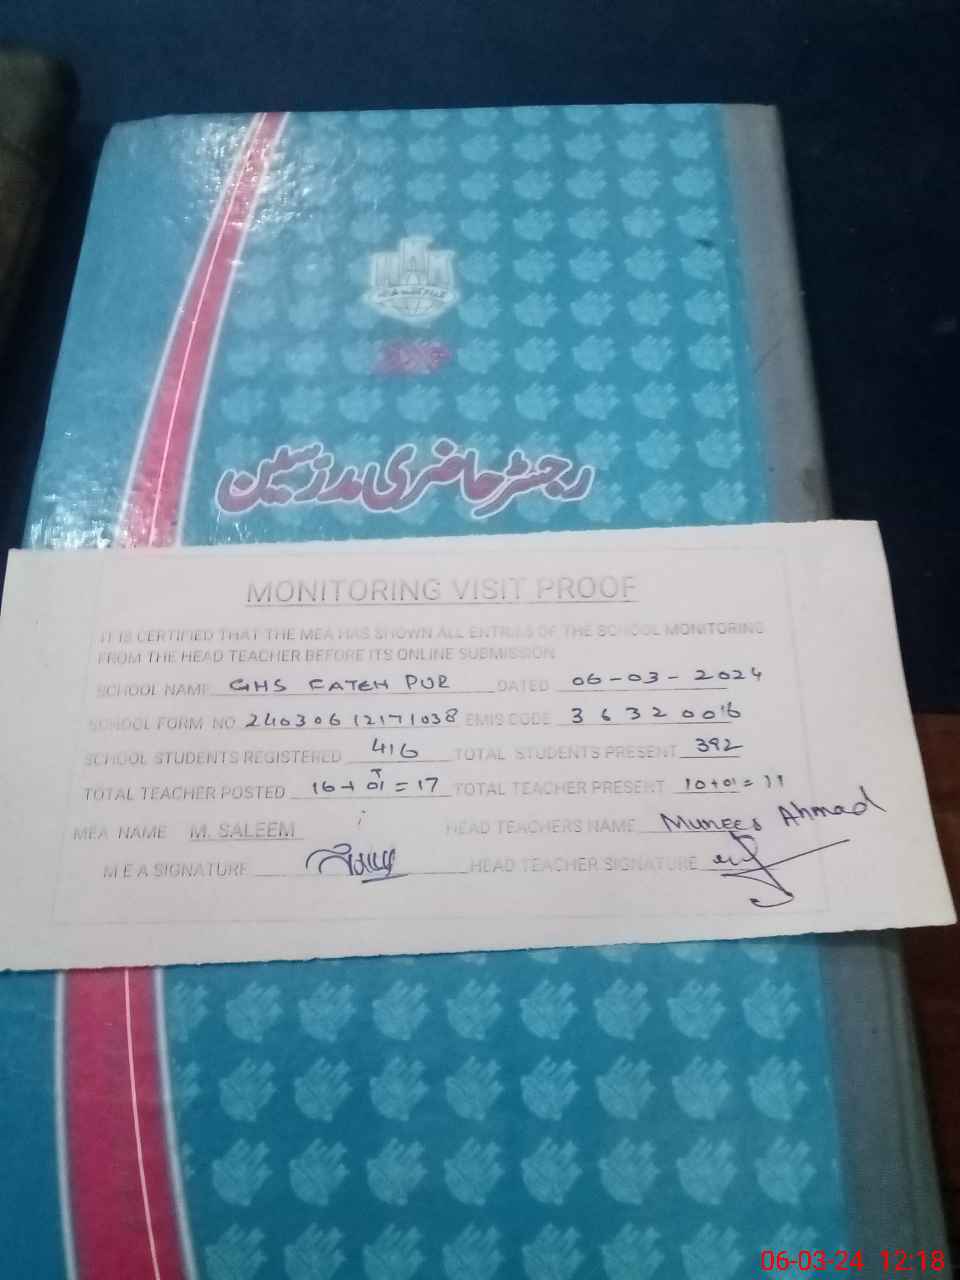 رجسٹر حاضری مدرسین
MONITORING VISIT PROOF
IT IS CERTIFIED THAT THE MEA HAS SHOWN ALL ENTRIES OF THE SCHOOL MONITORING
FROM THE HEAD TEACHER BEFORE ITS ONLINE SUBMISSION
SCHOOL NAME GHS FATEH PUR DATED 06-03-2024
SCHOOL FORM NO. 24030612171038 EMIS CODE 36320016
SCHOOL STUDENTS REGISTERED 416 TOTAL STUDENTS PRESENT 392
TOTAL TEACHER POSTED 16+01=17 TOTAL TEACHER PRESENT 10+01=11
MEA NAME M. SALEEM HEAD TEACHERS NAME Muneer Ahmad
M E A SIGNATURE HEAD TEACHER SIGNATURE
06-03-24 12:18